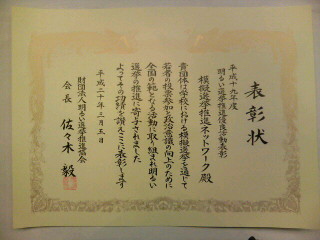 表彰状
平成十九年度
明るい選挙推進優良活動表彰
模擬選挙推進ネットワーク殿
貴団体は学校における模擬選挙を通じて
若者の投票参加と政治意識の向上のために
全国の範となる活動に取り組まれ明るい
選挙の推進に寄与されました
よってその功績を讃えここに表彰します
平成二十年三月五日
財団法人明るい選挙推進協会
会長 佐々木毅